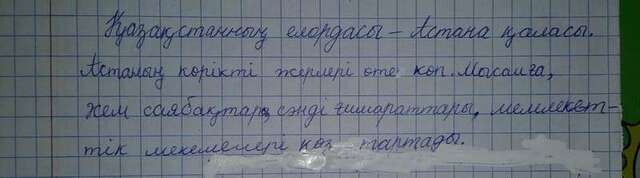 Қазақстанның елордасы – Астана қаласы.
Астаның көрікті жерлері өте көп. Мысалға,
көк саябақтар, сәнді ғимараттары, мемлекет-
тік мекемелері көз тартады.